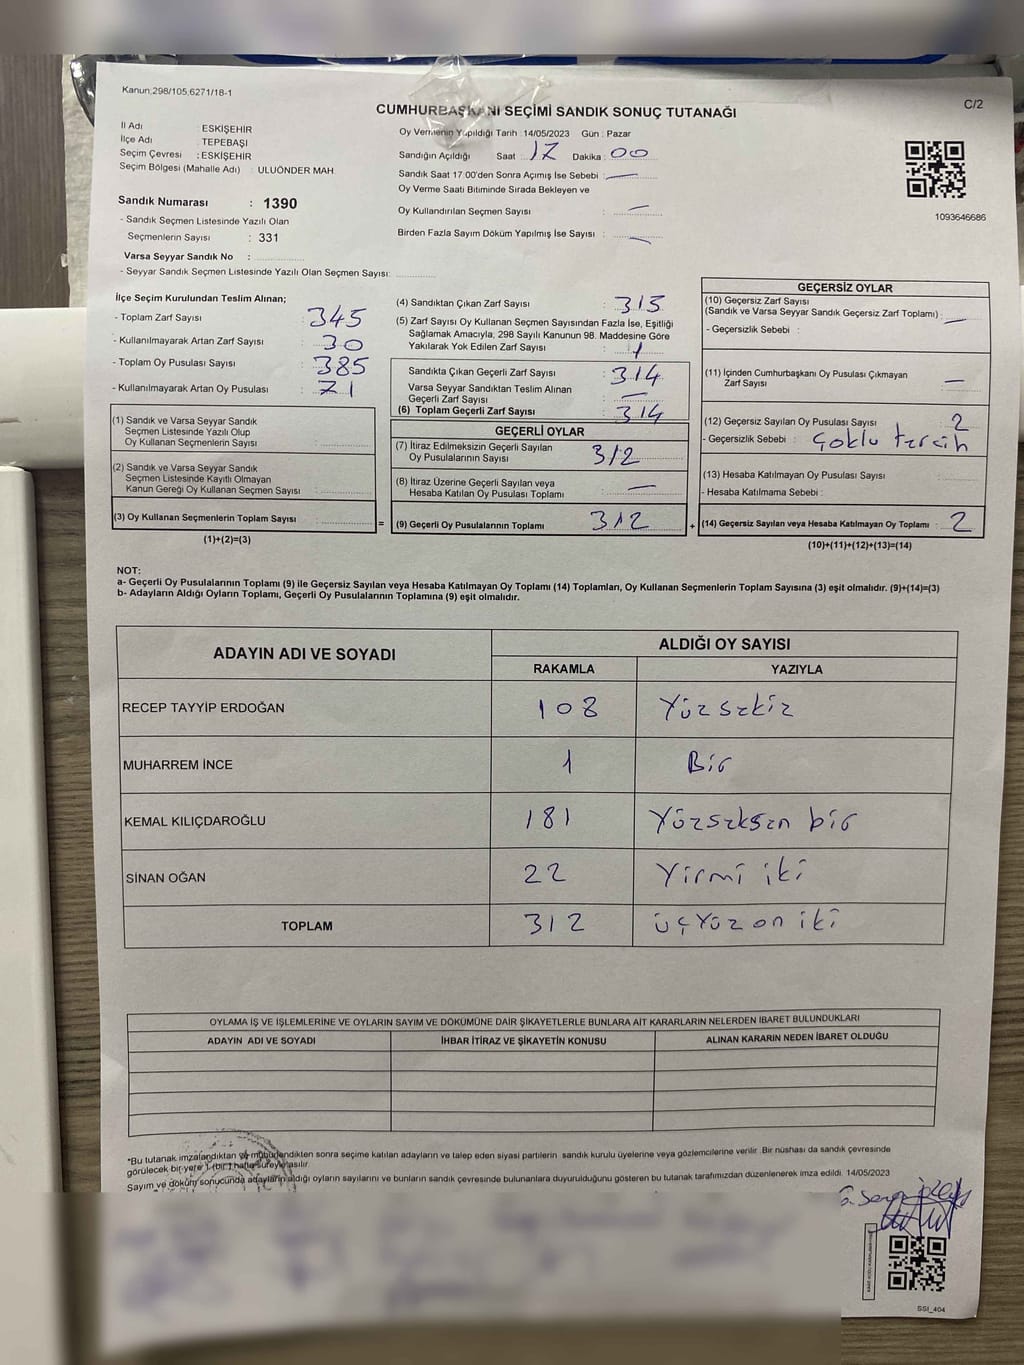 Kanun:298/105,6271/18-1
C/2
CUMHURBAŞKANI SEÇİMİ SANDIK SONUÇ TUTANAĞI
İl Adı : ESKİŞEHİR
İlçe Adı : TEPEBAŞI
Seçim Çevresi : ESKİŞEHİR
Seçim Bölgesi (Mahalle Adı) : ULUÖNDER MAH
Sandık Numarası : 1390
- Sandık Seçmen Listesinde Yazılı Olan
Seçmenlerin Sayısı : 331
Varsa Seyyar Sandık No :
- Seyyar Sandık Seçmen Listesinde Yazılı Olan Seçmen Sayısı:
Oy Vermenin Yapıldığı Tarih : 14/05/2023 Gün : Pazar
Sandığın Açıldığı Saat : 17 Dakika : 00
Sandık Saat 17:00'den Sonra Açımış İse Sebebi : —
Oy Verme Saati Bitiminde Sırada Bekleyen ve
Oy Kullandırılan Seçmen Sayısı : —
Birden Fazla Sayım Döküm Yapılmış İse Sayısı : —
1093646686
İlçe Seçim Kurulundan Teslim Alınan;
- Toplam Zarf Sayısı : 345
- Kullanılmayarak Artan Zarf Sayısı : 30
- Toplam Oy Pusulası Sayısı : 385
- Kullanılmayarak Artan Oy Pusulası : 71
(1) Sandık ve Varsa Seyyar Sandık
Seçmen Listesinde Yazılı Olup
Oy Kullanan Seçmenlerin Sayısı :
(2) Sandık ve Varsa Seyyar Sandık
Seçmen Listesinde Kayıtlı Olmayan
Kanun Gereği Oy Kullanan Seçmen Sayısı :
(3) Oy Kullanan Seçmenlerin Toplam Sayısı :
(1)+(2)=(3)
=
(4) Sandıktan Çıkan Zarf Sayısı : 315
(5) Zarf Sayısı Oy Kullanan Seçmen Sayısından Fazla İse, Eşitliği
Sağlamak Amacıyla, 298 Sayılı Kanunun 98. Maddesine Göre
Yakılarak Yok Edilen Zarf Sayısı : 1
Sandıkta Çıkan Geçerli Zarf Sayısı : 314
Varsa Seyyar Sandıktan Teslim Alınan
Geçerli Zarf Sayısı : —
(6) Toplam Geçerli Zarf Sayısı : 314
GEÇERLİ OYLAR
(7) İtiraz Edilmeksizin Geçerli Sayılan
Oy Pusulalarının Sayısı : 312
(8) İtiraz Üzerine Geçerli Sayılan veya
Hesaba Katılan Oy Pusulası Toplamı : —
(9) Geçerli Oy Pusulalarının Toplamı : 312
+
GEÇERSİZ OYLAR
(10) Geçersiz Zarf Sayısı
(Sandık ve Varsa Seyyar Sandık Geçersiz Zarf Toplamı) : —
- Geçersizlik Sebebi :
(11) İçinden Cumhurbaşkanı Oy Pusulası Çıkmayan
Zarf Sayısı : —
(12) Geçersiz Sayılan Oy Pusulası Sayısı : 2
- Geçersizlik Sebebi : Çoklu tercih
(13) Hesaba Katılmayan Oy Pusulası Sayısı :
- Hesaba Katılmama Sebebi :
(14) Geçersiz Sayılan veya Hesaba Katılmayan Oy Toplamı : 2
(10)+(11)+(12)+(13)=(14)
NOT:
a- Geçerli Oy Pusulalarının Toplamı (9) ile Geçersiz Sayılan veya Hesaba Katılmayan Oy Toplamı (14) Toplamları, Oy Kullanan Seçmenlerin Toplam Sayısına (3) eşit olmalıdır. (9)+(14)=(3)
b- Adayların Aldığı Oyların Toplamı, Geçerli Oy Pusulalarının Toplamına (9) eşit olmalıdır.
ADAYIN ADI VE SOYADI
ALDIĞI OY SAYISI
RAKAMLA YAZIYLA
RECEP TAYYİP ERDOĞAN 108 Yüz sekiz
MUHARREM İNCE 1 Bir
KEMAL KILIÇDAROĞLU 181 Yüzseksen bir
SİNAN OĞAN 22 Yirmi iki
TOPLAM 312 üçYüz on iki
OYLAMA İŞ VE İŞLEMLERİNE VE OYLARIN SAYIM VE DÖKÜMÜNE DAİR ŞİKAYETLERLE BUNLARA AİT KARARLARIN NELERDEN İBARET BULUNDUKLARI
ADAYIN ADI VE SOYADI İHBAR İTİRAZ VE ŞİKAYETİN KONUSU ALINAN KARARIN NEDEN İBARET OLDUĞU
*Bu tutanak imzalandıktan ve mühürlendikten sonra seçime katılan adayların ve talep eden siyasi partilerin sandık kurulu üyelerine veya gözlemcilerine verilir. Bir nüshası da sandık çevresinde
görülecek bir yere 1 (bir) hafta süreyle asılır.
Sayım ve döküm sonucunda adayların aldığı oyların sayılarını ve bunların sandık çevresinde bulunanlara duyurulduğunu gösteren bu tutanak tarafımızdan düzenlenerek imza edildi. 14/05/2023
SSI_404